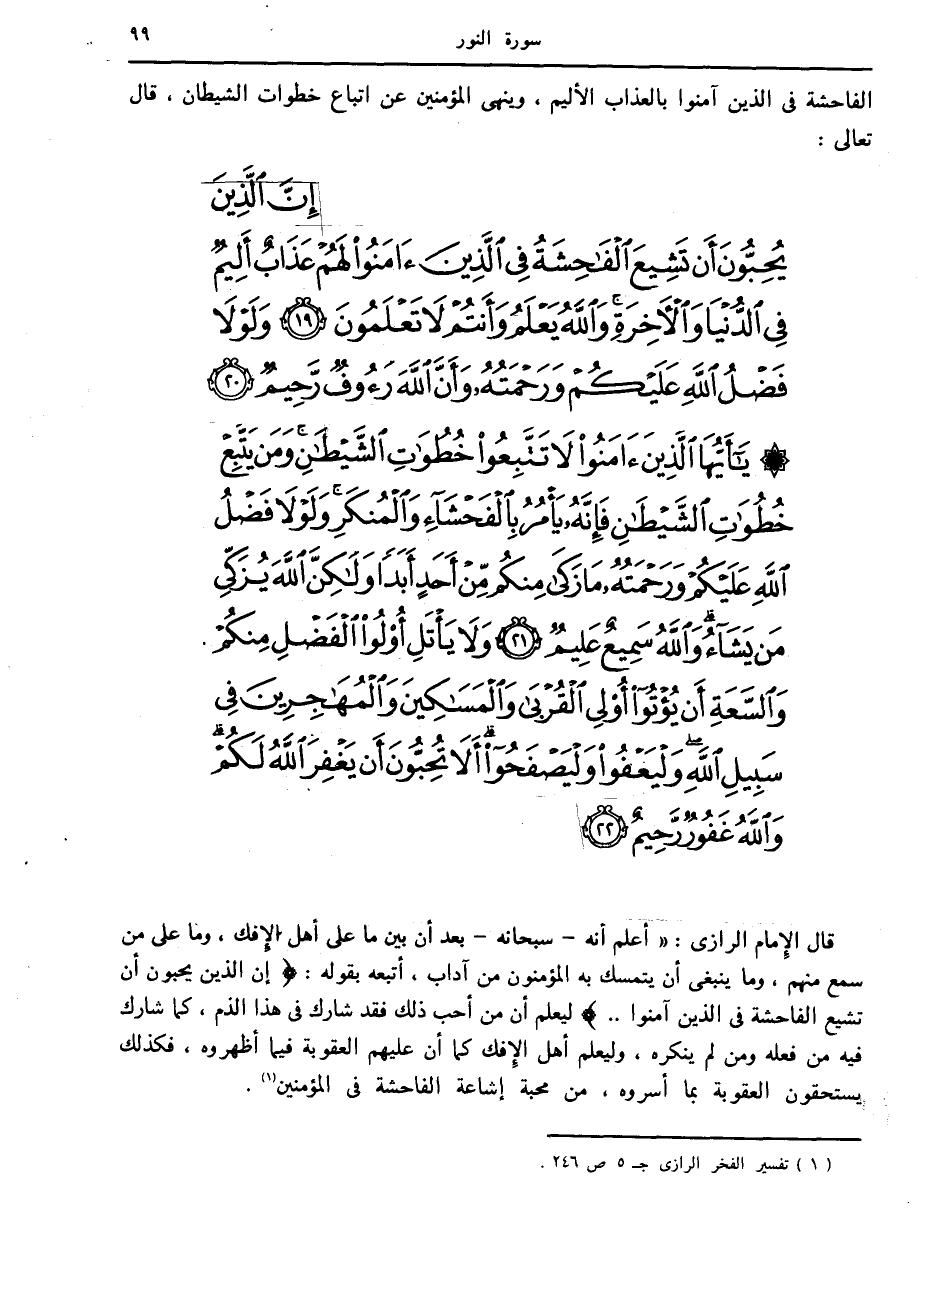 سورة النور
٩٩
الفاحشة فى الذين آمنوا بالعذاب الأليم ، وينهى المؤمنين عن اتباع خطوات الشيطان ، قال
تعالى :
إِنَّ ٱلَّذِينَ
يُحِبُّونَ أَن تَشِيعَ ٱلْفَٰحِشَةُ فِى ٱلَّذِينَ ءَامَنُوا۟ لَهُمْ عَذَابٌ أَلِيمٌ
فِى ٱلدُّنْيَا وَٱلْأَخِرَةِ ۚ وَٱللَّهُ يَعْلَمُ وَأَنتُمْ لَا تَعْلَمُونَ ١٩ وَلَوْلَا
فَضْلُ ٱللَّهِ عَلَيْكُمْ وَرَحْمَتُهُۥ وَأَنَّ ٱللَّهَ رَءُوفٌ رَّحِيمٌ ٢٠
۞ يَٰٓأَيُّهَا ٱلَّذِينَ ءَامَنُوا۟ لَا تَتَّبِعُوا۟ خُطُوَٰتِ ٱلشَّيْطَٰنِ ۚ وَمَن يَتَّبِعْ
خُطُوَٰتِ ٱلشَّيْطَٰنِ فَإِنَّهُۥ يَأْمُرُ بِٱلْفَحْشَآءِ وَٱلْمُنكَرِ ۚ وَلَوْلَا فَضْلُ
ٱللَّهِ عَلَيْكُمْ وَرَحْمَتُهُۥ مَا زَكَىٰ مِنكُم مِّنْ أَحَدٍ أَبَدًا وَلَٰكِنَّ ٱللَّهَ يُزَكِّى
مَن يَشَآءُ ۗ وَٱللَّهُ سَمِيعٌ عَلِيمٌ ٢١ وَلَا يَأْتَلِ أُو۟لُوا۟ ٱلْفَضْلِ مِنكُمْ
وَٱلسَّعَةِ أَن يُؤْتُوٓا۟ أُو۟لِى ٱلْقُرْبَىٰ وَٱلْمَسَٰكِينَ وَٱلْمُهَٰجِرِينَ فِى
سَبِيلِ ٱللَّهِ ۖ وَلْيَعْفُوا۟ وَلْيَصْفَحُوٓا۟ ۗ أَلَا تُحِبُّونَ أَن يَغْفِرَ ٱللَّهُ لَكُمْ ۗ
وَٱللَّهُ غَفُورٌ رَّحِيمٌ ٢٢
قال الإمام الرازى : « أعلم أنه – سبحانه – بعد أن بين ما على أهل الإفك ، وما على من
سمع منهم ، وما ينبغى أن يتمسك به المؤمنون من آداب ، أتبعه بقوله : ﴿ إن الذين يحبون أن
تشيع الفاحشة فى الذين آمنوا .. ﴾ ليعلم أن من أحب ذلك فقد شارك فى هذا الذم ، كما شارك
فيه من فعله ومن لم ينكره ، وليعلم أهل الإفك كما أن عليهم العقوبة فيما أظهروه ، فكذلك
يستحقون العقوبة بما أسروه ، من محبة إشاعة الفاحشة فى المؤمنين(١) .
( ١ ) تفسير الفخر الرازى جـ ٥ ص ٢٤٦ .